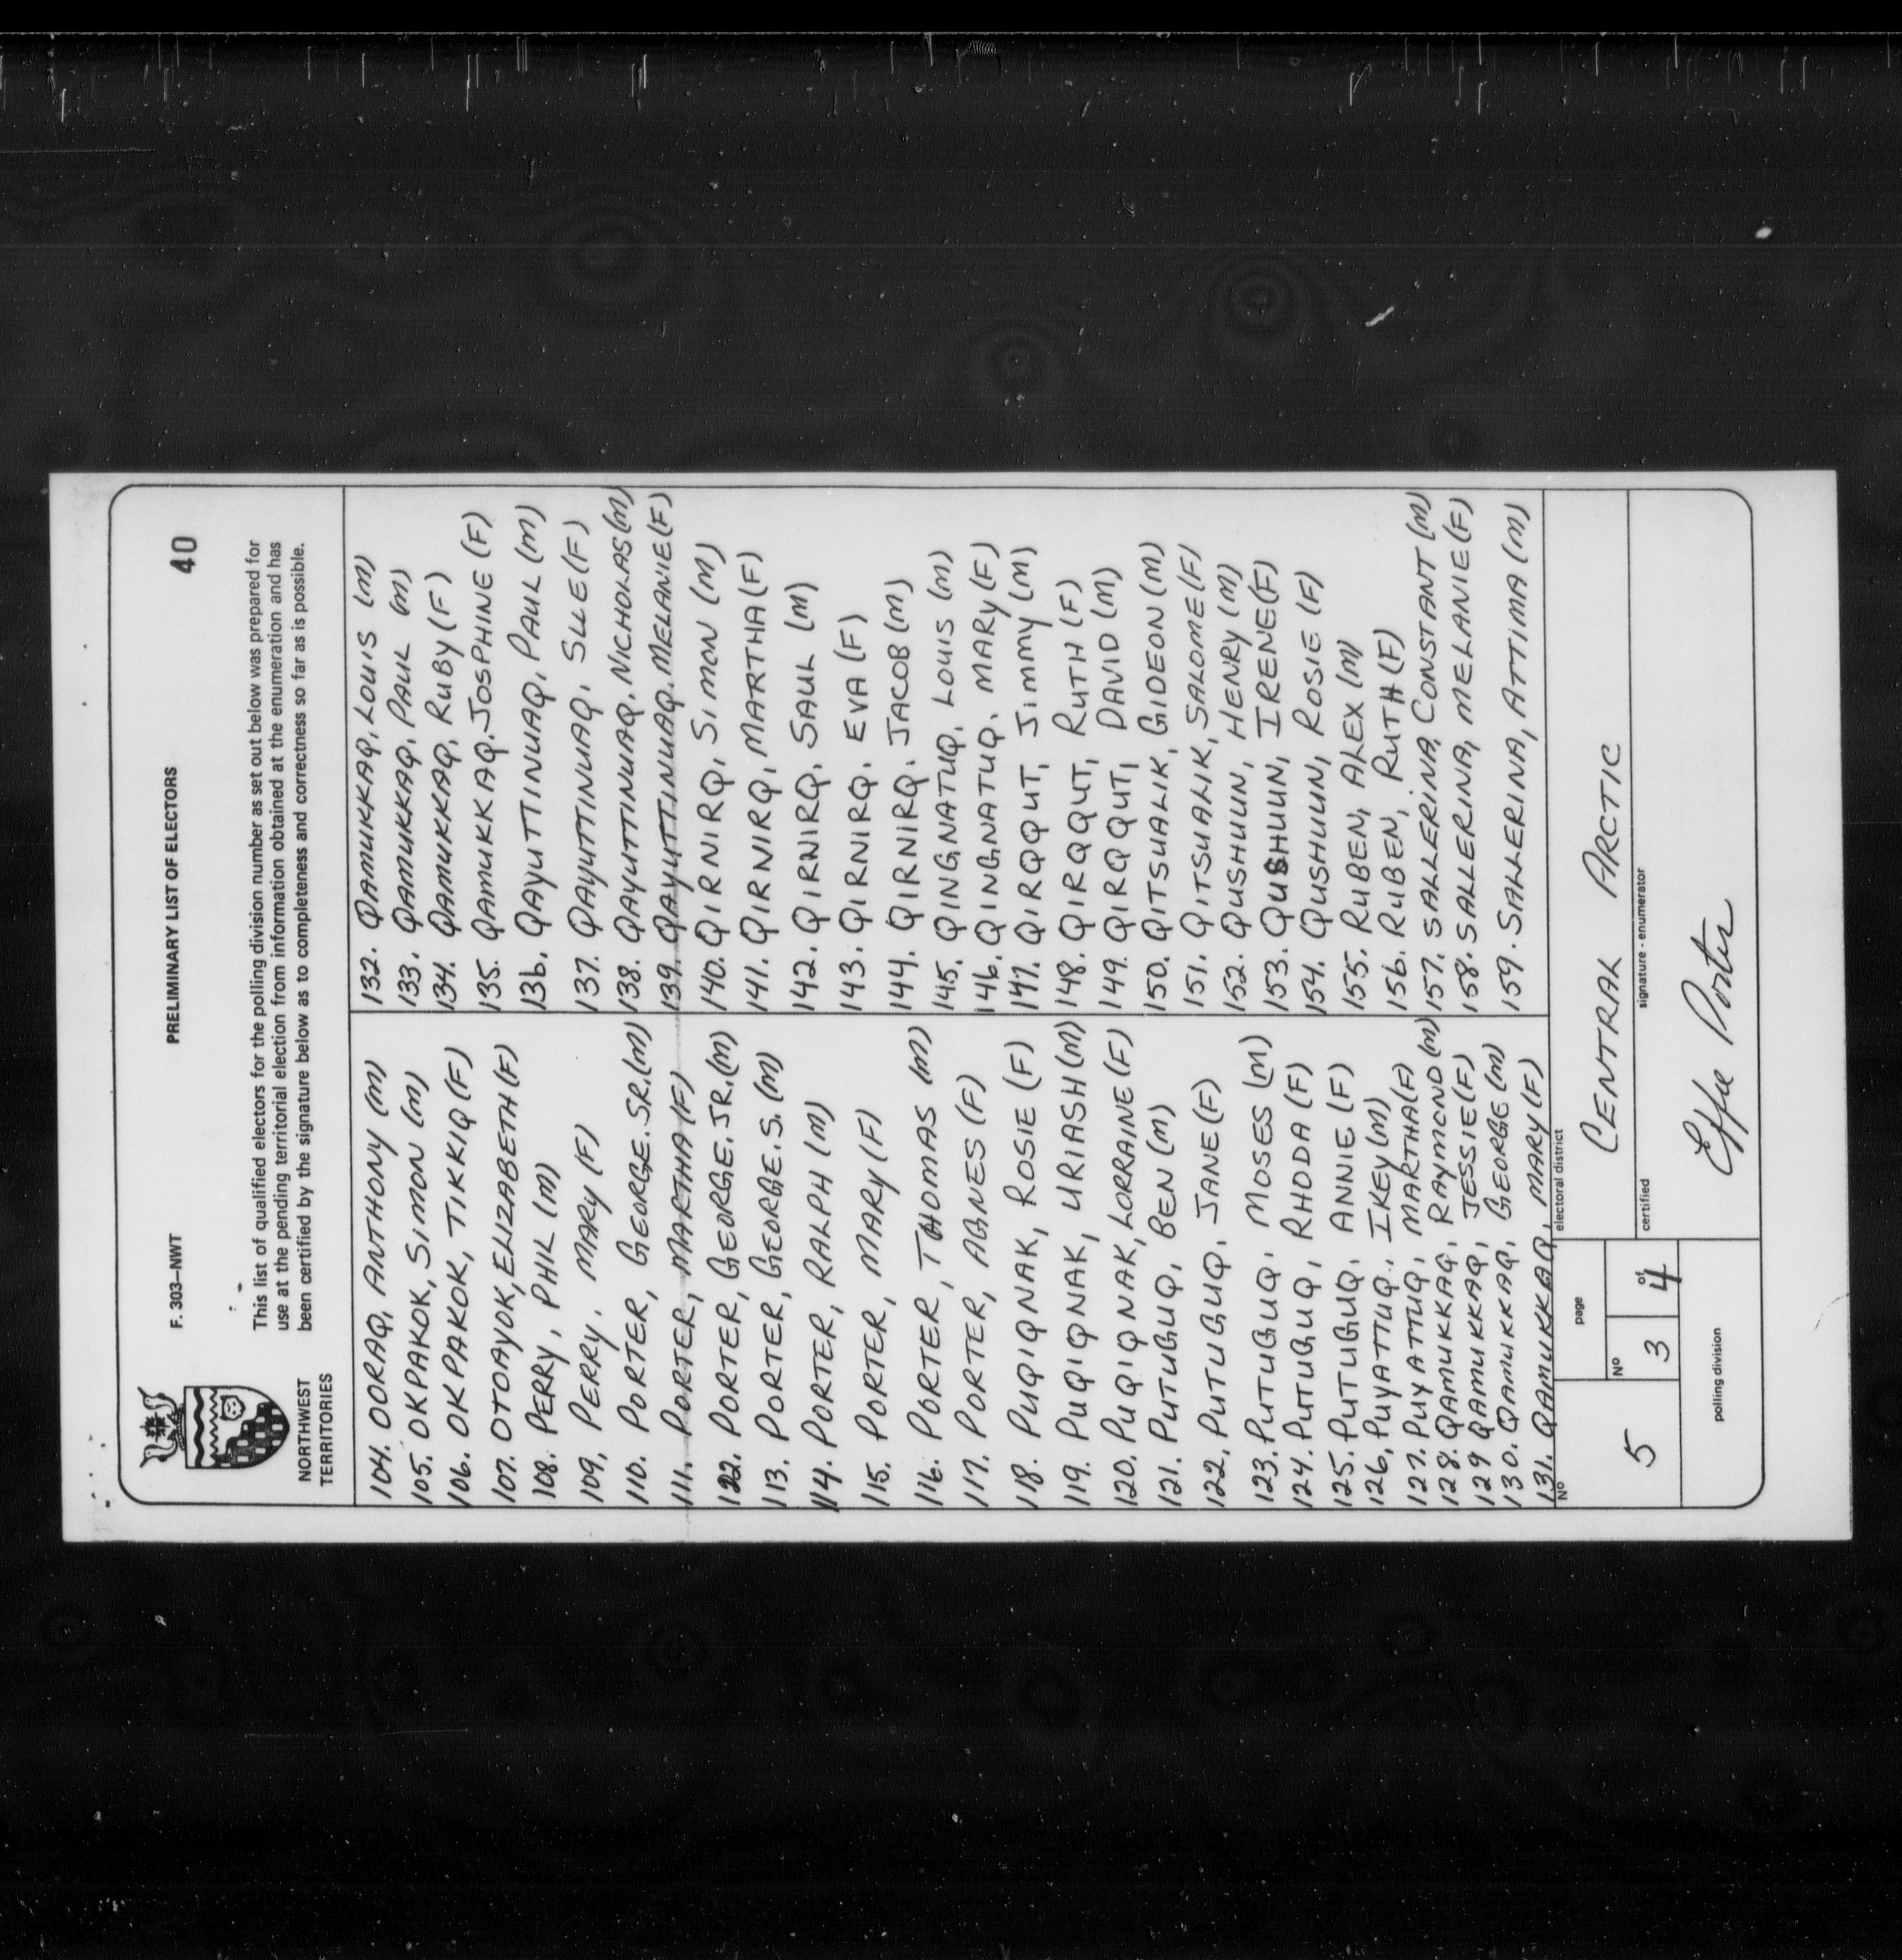 NORTHWEST
TERRITORIES
F. 303–NWT
PRELIMINARY LIST OF ELECTORS
40
This list of qualified electors for the polling division number as set out below was prepared for
use at the pending territorial election from information obtained at the enumeration and has
been certified by the signature below as to completeness and correctness so far as is possible.
104. OORAQ, ANTHONY (M)
105. OKPAKOK, SIMON (M)
106. OKPAKOK, TIKKIQ (F)
107. OTOAYOK, ELIZABETH (F)
108. PERRY, PHIL (M)
109. PERRY, MARY (F)
110. PORTER, GEORGE. SR. (M)
111. PORTER, MARTHA (F)
122. PORTER, GEORGE. JR. (M)
113. PORTER, GEORGE. S. (M)
114. PORTER, RALPH (M)
115. PORTER, MARY (F)
116. PORTER, THOMAS (M)
117. PORTER, AGNES (F)
118. PUQIQNAK, ROSIE (F)
119. PUQIQNAK, URIASH (M)
120. PUQIQNAK, LORRAINE (F)
121. PUTUGUQ, BEN (M)
122. PUTUGUQ, JANE (F)
123. PUTUGUQ, MOSES (M)
124. PUTUGUQ, RHODA (F)
125. PUTUGUQ, ANNIE (F)
126. PUYATTUQ., IKEY (M)
127. PUYATTUQ, MARTHA (F)
128. QAMUKKAQ, RAYMOND (M)
129 QAMUKKAQ, JESSIE (F)
130. QAMUKKAQ, GEORGE (M)
131. QAMUKKAQ, MARY (F)
132. QAMUKKAQ, LOUIS (M)
133. QAMUKKAQ, PAUL (M)
134. QAMUKKAQ, RUBY (F)
135. QAMUKKAQ. JOSPHINE (F)
136. QAYUTTINUAQ, PAUL (M)
137. QAYUTTINUAQ, SUE (F)
138. QAYUTTINUAQ, NICHOLAS (M)
139. QAYUTTINUAQ. MELANIE (F)
140. QIRNIRQ, SIMON (M)
141. QIRNIRQ, MARTHA (F)
142. QIRNIRQ, SAUL (M)
143. QIRNIRQ, EVA (F)
144. QIRNIRQ. JACOB (M)
145. QINGNATUQ, LOUIS (M)
146. QINGNATUQ. MARY (F)
147. QIRQQUT, JIMMY (M)
148. QIRQQUT, RUTH (F)
149. QIRQQUT, DAVID (M)
150. QITSUALIK, GIDEON (M)
151. QITSUALIK, SALOME (F)
152. QUSHUUN, HENRY (M)
153. QUSHUUN, IRENE (F)
154. QUSHUUN, ROSIE (F)
155. RUBEN, ALEX (M)
156. RUBEN, RUTH (F)
157. SALLERINA, CONSTANT (M)
158. SALLERINA, MELANIE (F)
159. SALLERINA, ATTIMA (M)
Nº
5
polling division
page
Nº
3
of
4
electoral district
CENTRAL ARCTIC
certified
signature - enumerator
Effie Porter